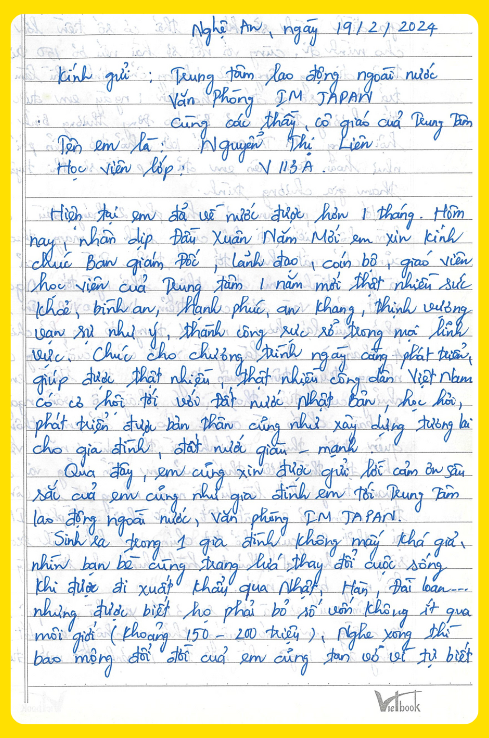 Nghệ An, ngày 19/2/2024
Kính gửi : Trung tâm lao động ngoài nước
Văn Phòng IM JAPAN
Cùng các thầy, cô giáo của Trung Tâm
Tên em là : Nguyễn Thị Liên
Học viên lớp : V113A.
Hiện tại em đã về nước được hơn 1 tháng. Hôm
nay, nhân dịp Đầu Xuân Năm Mới em xin kính
chúc Ban giám Đốc, lãnh đạo, cán bộ, giáo viên
học viên của Trung tâm 1 năm mới thật nhiều sức
khoẻ, bình an, hạnh phúc, an khang, thịnh vượng
vạn sự như ý, thành công rực rỡ trong mọi lĩnh
vực. Chúc cho chương trình ngày càng phát triển,
giúp được thật nhiều, thật nhiều công dân Việt Nam
có cơ hội tới với đất nước Nhật Bản, học hỏi,
phát triển được bản thân cũng như xây dựng tương lai
cho gia đình, đất nước giàu - mạnh
Qua đây, em cũng xin được gửi lời cảm ơn sâu
sắc của em cũng như gia đình em tới Trung Tâm
lao động ngoài nước, văn phòng IM JAPAN.
Sinh ra trong 1 gia đình không mấy khá giả,
nhìn bạn bè cùng trang lứa thay đổi cuộc sống
khi được đi xuất khẩu qua Nhật, Hàn, Đài loan....
nhưng được biết họ phải bỏ số vốn không ít qua
môi giới (khoảng 150 - 200 triệu), Nghe xong thì
bao mộng đổi đời của em cũng tan vỡ vì tự biết
Vietbook